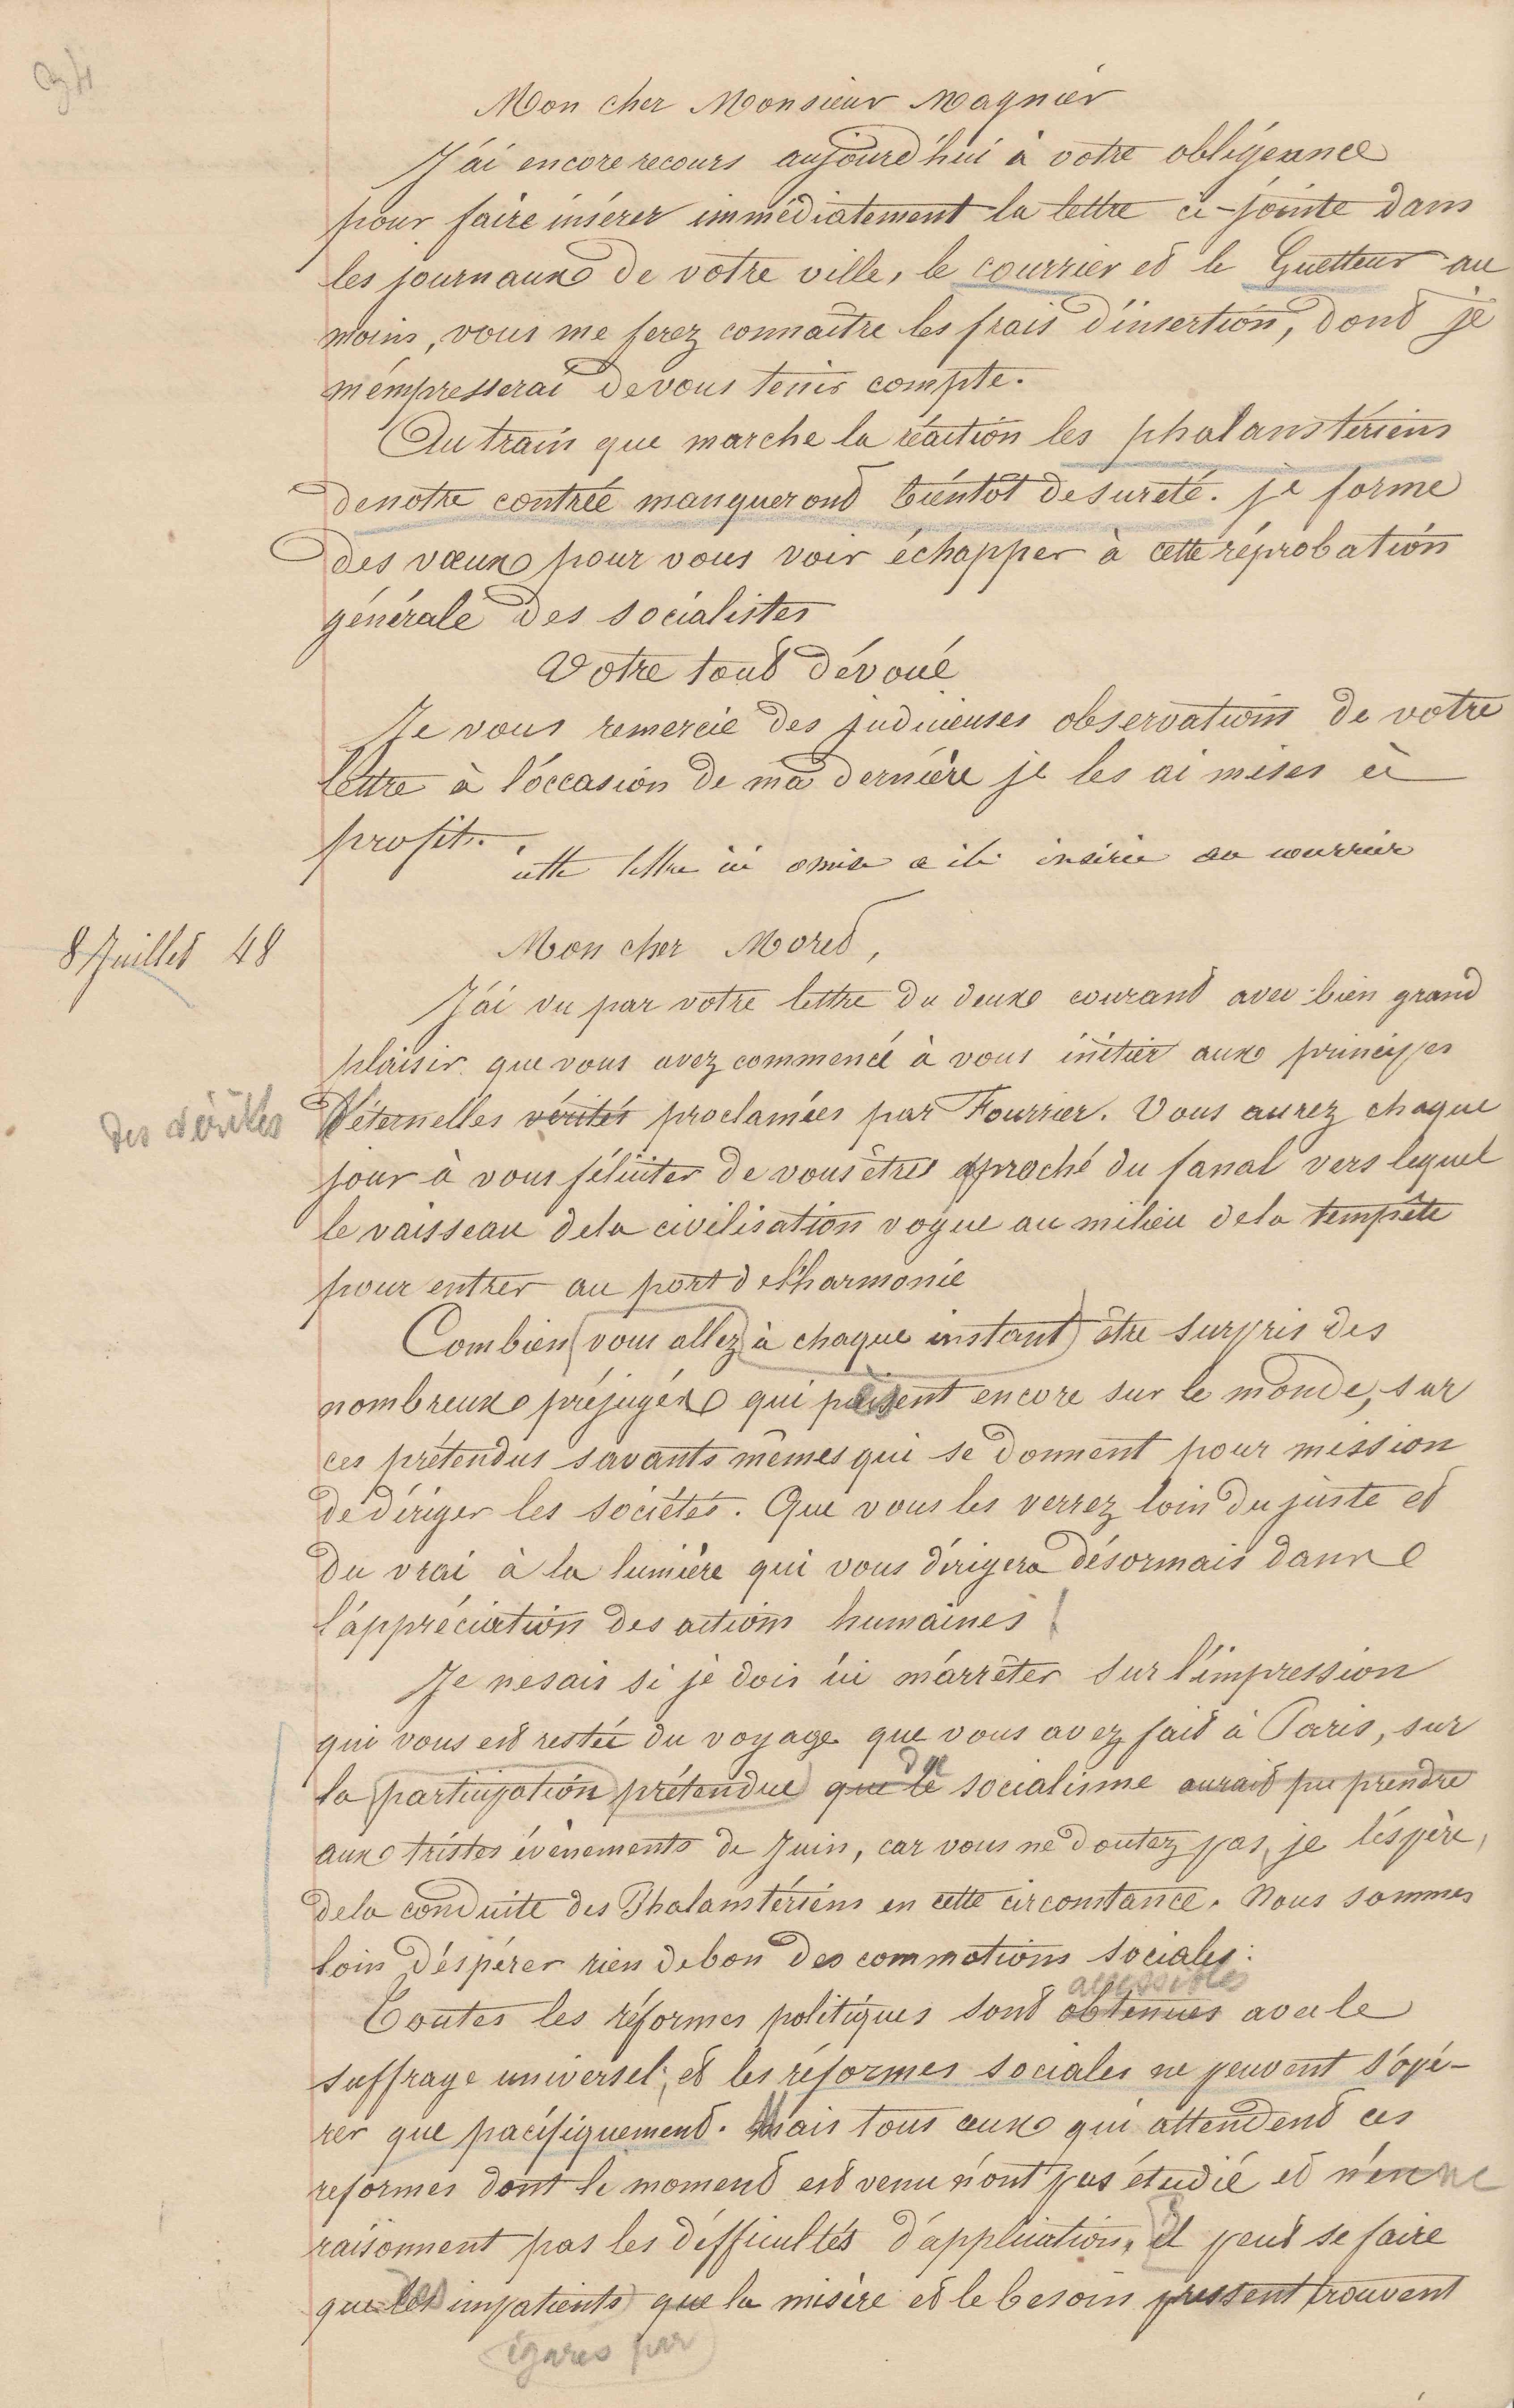 Mon cher Monsieur Magnier
J'ai encore recours aujourd'hui à votre obligeance
pour faire insérer immédiatement la lettre ci-jointe dans
les journaux de votre ville, le courrier et le Guetteur au
moins, vous me ferez connaître les frais d'insertion, dont je
m'empresserai de vous tenir compte.
Au train que marche la réaction les phalanstériens
de notre contrée manqueront bientôt de sureté. je forme
des vœux pour vous voir échapper à cette réprobation
générale des socialistes
Votre tout dévoué
Je vous remercie des judicieuses observations de votre
lettre à l'occasion de ma dernière je les ai mises à
profit.
cette lettre ici omise a été insérée au courrier
8 Juillet 48
Mon cher Moret,
J'ai vu par votre lettre du deux courant avec bien grand
plaisir que vous avez commencé à vous initier aux principes
des vérités
d'éternelles vérités proclamées par Fourrier. Vous aurez chaque
jour à vous féliciter de vous être approché du fanal vers lequel
le vaisseau de la civilisation vogue au milieu de la tempête
pour entrer au port de l'harmonie
Combien vous allez à chaque instant être surpris des
nombreux préjugés qui pèsent encore sur le monde, sur
ces prétendus savants mêmes qui se donnent pour mission
de dériger les sociétés. Que vous les verrez loin du juste et
du vrai à la lumière qui vous dirigera désormais dans
l'appréciation des actions humaines !
Je ne sais si je dois ici m'arrêter sur l'impression
qui vous est restée du voyage que vous avez fait à Paris, sur
du
la participation prétendue que le socialisme aurait pu prendre
aux tristes évènements de Juin, car vous ne doutez pas, je l'espère,
de la conduite des Phalanstériens en cette circonstance. Nous sommes
loin d'espérer rien de bon des commotions sociales.
accessibles
Toutes les réformes politiques sont obtenues avec le
suffrage universel, et les réformes sociales ne peuvent s'opé-
rer que pacifiquement. Mais tous ceux qui attendent ces
reformes dont le moment est venu n'ont pas étudié et n'en ne
raisonnent pas les difficultés d'application, il peut se faire
que les impatients que la misère et le besoin pressent trouvent
égarés par